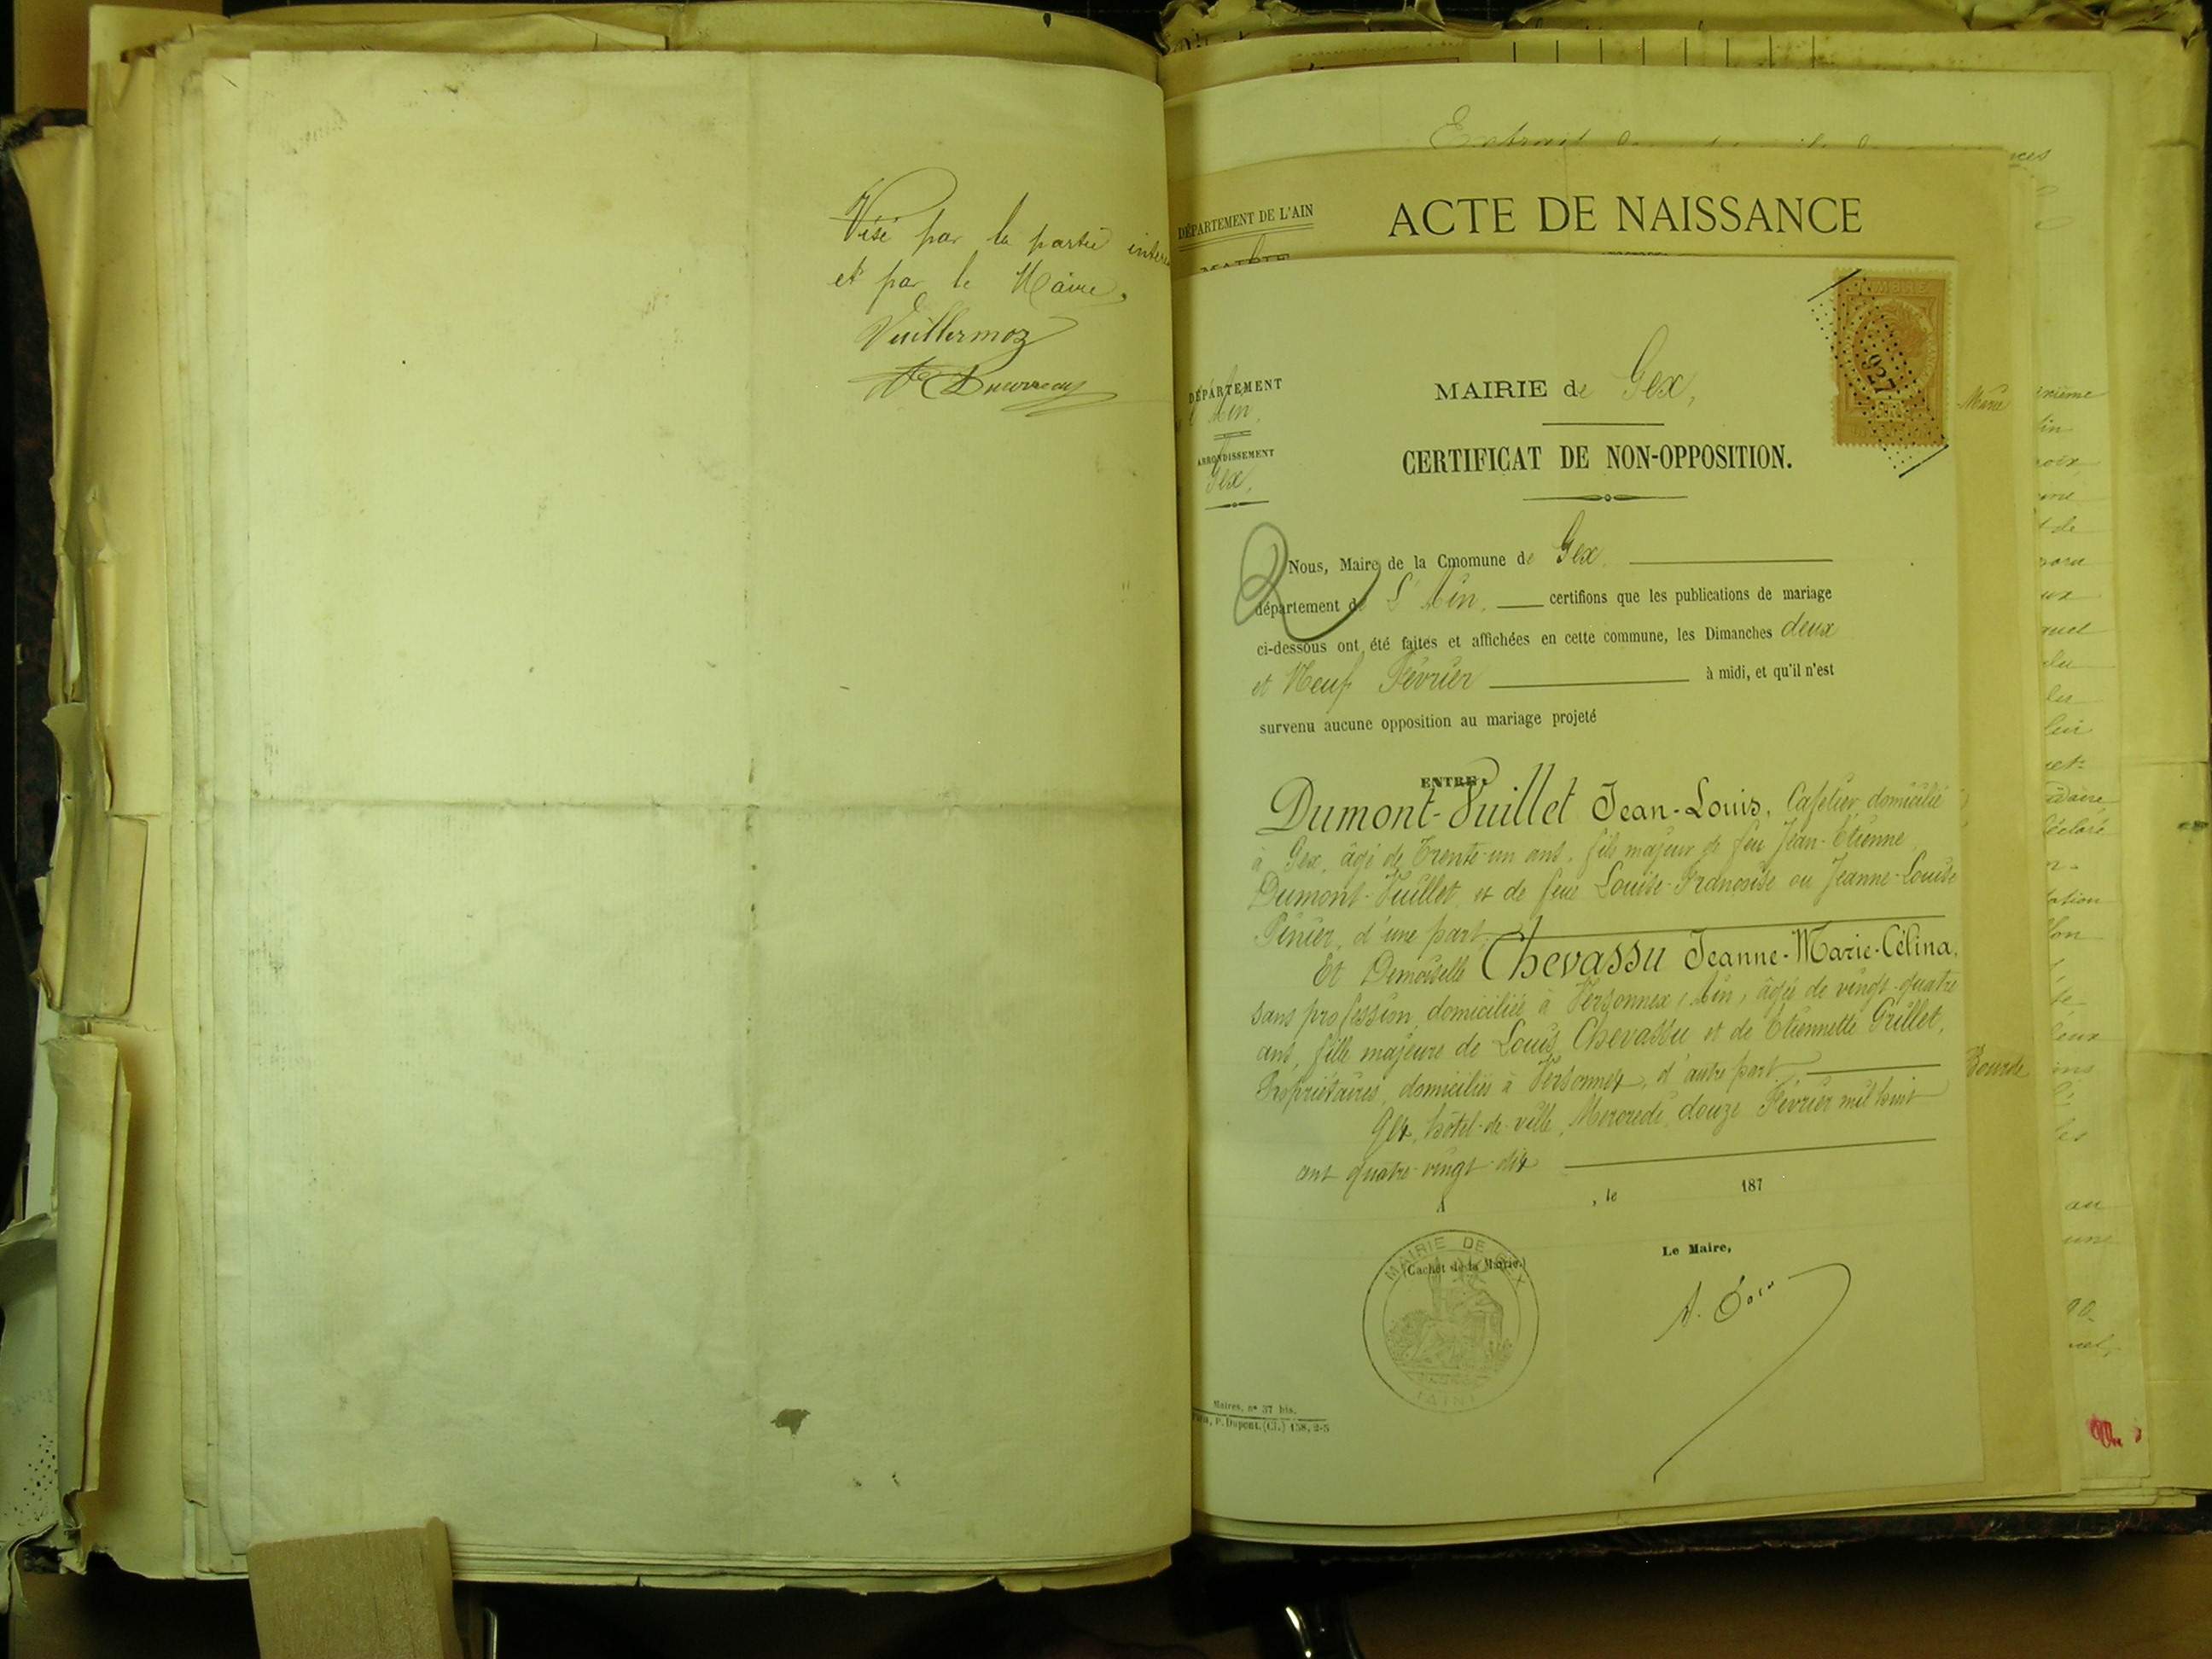 Visé par la partie
et par le Maire,
Vuillermoz
DÉPARTEMENT DE L'AIN
ACTE DE NAISSANCE
MAIRIE
TIMBRE
927
DÉPARTEMENT
Ain.
ARRONDISSEMENT
Gex,
MAIRIE de Gex,
CERTIFICAT DE NON-OPPOSITION.
Nous, Maire de la Cmomune de Gex.
département de L'Ain. certifions que les publications de mariage
ci-dessous ont été faites et affichées en cette commune, les Dimanches deux
et Neuf Février à midi, et qu'il n'est
survenu aucune opposition au mariage projeté
ENTRE:
Dumont-Vuillet Jean-Louis, Cafetier, domicilié
à Gex, âgé de Trente-un ans, fils majeur de feu Jean-Etienne
Dumont-Vuillet, et de feue Louise-Françoise ou Jeanne-Louise
Pinier, d'une part,
Et Demoiselle Chevassu Jeanne-Marie-Célina,
sans profession, domiciliée à Versonnex, Ain, âgée de vingt-quatre
ans, fille majeure de Louis Chevassu et de Etiennette Grillet,
Propriétaires, domiciliés à Versonnex, d'autre part,
Gex, hôtel-de-ville, Mercredi, douze Février mil huit
cent quatre-vingt-dix
A , le 187
Le Maire,
(Cachet de la Mairie.)
MAIRIE DE GEX
(AIN)
Maires, nº 37 bis.
P. Dupont. (Cl.) 158, 2-5
Marie